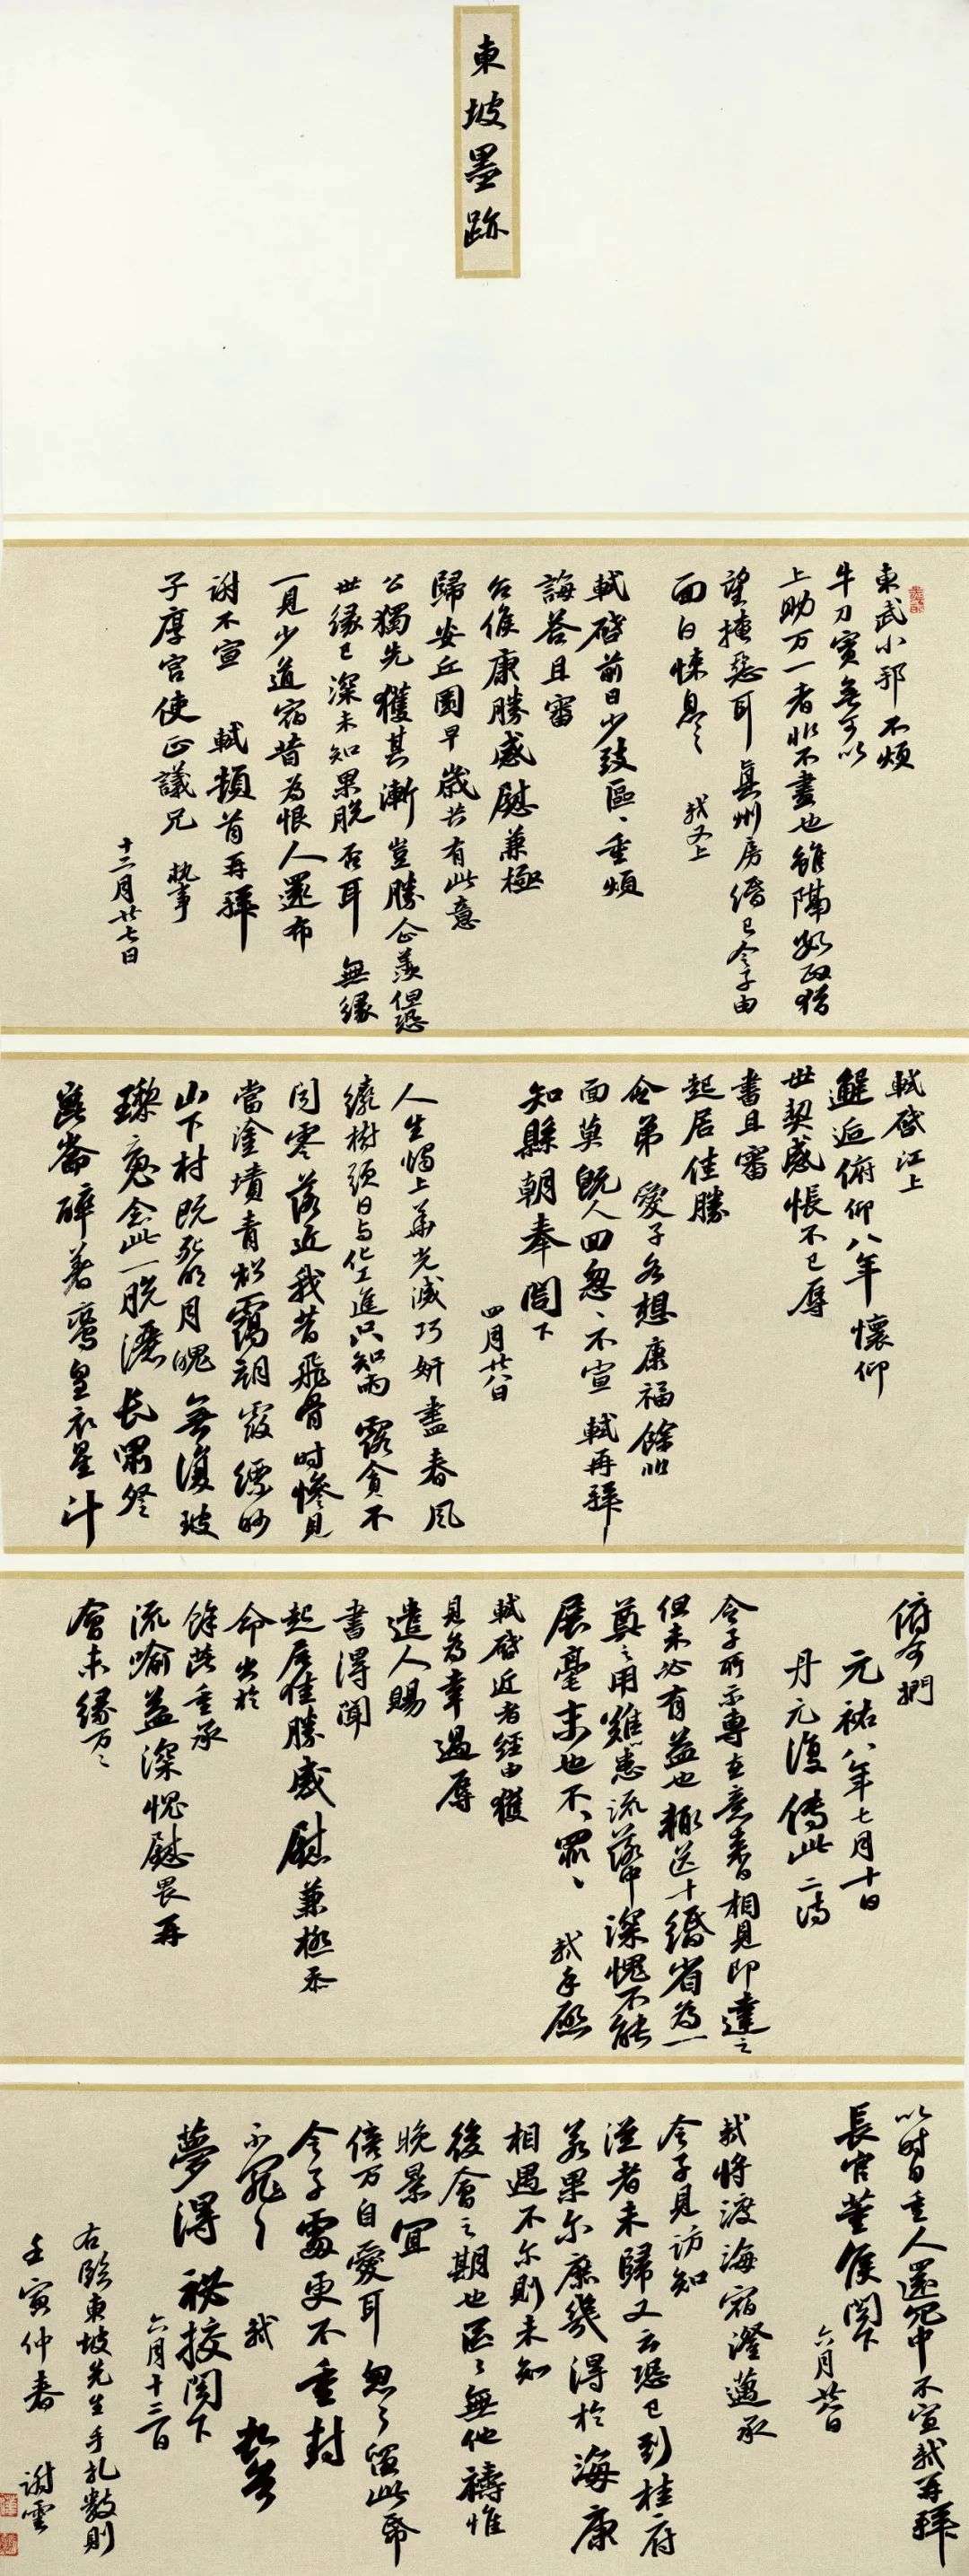 東坡墨跡
東武小邦不煩
牛刀實無可以
上助万一者非不盡也雖隔數政猶
望掩惡耳真州房緡已令子由
面白悚息之
軾又上
軾啓前日少致區、重煩
誨答且審
台候康勝感慰兼極
歸安丘園早歲共有此意
公獨先獲其漸豈勝企羨但恐
世緣已深未知果脫否耳無緣
一見少道宿昔為恨人還布
謝不宣軾頓首再拜
子厚宮使正議兄執事
十二月廿七日
軾啓江上
邂逅俯仰八年懷仰
世契感悵不已辱
書且審
起居佳勝
令弟愛子各想康福餘非
面莫既人回怱、不宣軾再拜
知縣朝奉閤下
四月廿八日
人生燭上華光滅巧妍盡春風
繞樹頭日与化工進只知雨露貪不
聞零落近我昔飛骨時慘見
當塗墳青松靄朝霞縹眇
山下村既死明月魄無復玻
瓈魂念此一脫灑長嘯登
崑崙醉著鸞皇衣星斗
俯可捫
元祐八年七月十日
丹元復傳此二詩
令子所示專在意來日相見即達之
但未必有益也輒送十緡省為一
奠之用雖患流落中深愧不能
展毫末也不罪、軾手啓
軾啓近者經由獲
見為幸過辱
遣人賜
書得聞
起居佳勝感慰兼極忝
命出於
餘芘重承
流喻益深愧慰畏再
會未緣万、
以時自重人還冗中不宣軾再拜
長官董侯閤下
六月廿八日
軾將渡海宿澄邁承
令子見訪知
從者未歸又云恐已到桂府
若果尔庶幾得於海康
相遇不尔則未知
後會之期也區、無他禱惟
晚景宜
倍万自愛耳怱、留此帋
令子處更不重封
不罪、軾頓首
夢得秘校閤下
六月十三日
右臨東坡先生手札數則
壬寅仲春謝雲